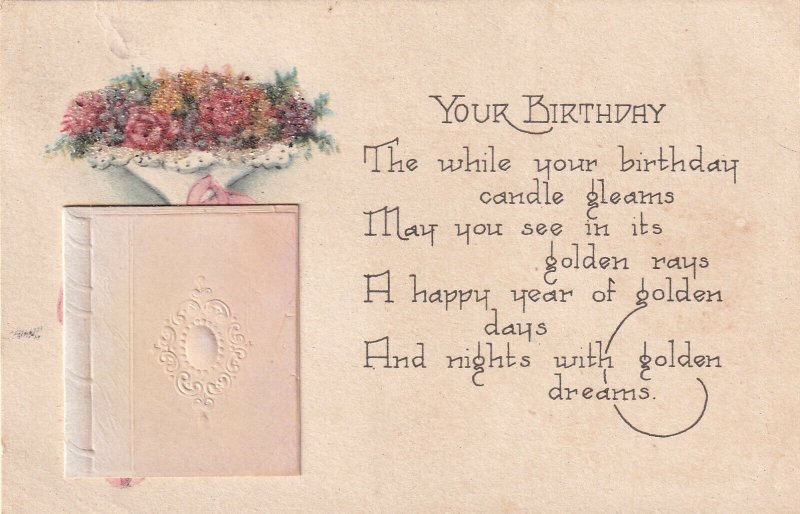 YOUR BIRTHDAY
The while your birthday
candle gleams
May you see in its
golden rays
A happy year of golden
days
And nights with golden
dreams.